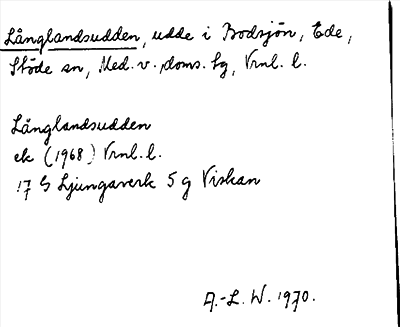 Långlandsudden, udde i Bodsjön, Ede,
Stöde sn, Med. v. doms. tg, Vrnl. l.
Långlandsudden
ek (1968) Vrnl. l.
17 G Ljungaverk 5 g Viskan
A.-L. W. 1970.